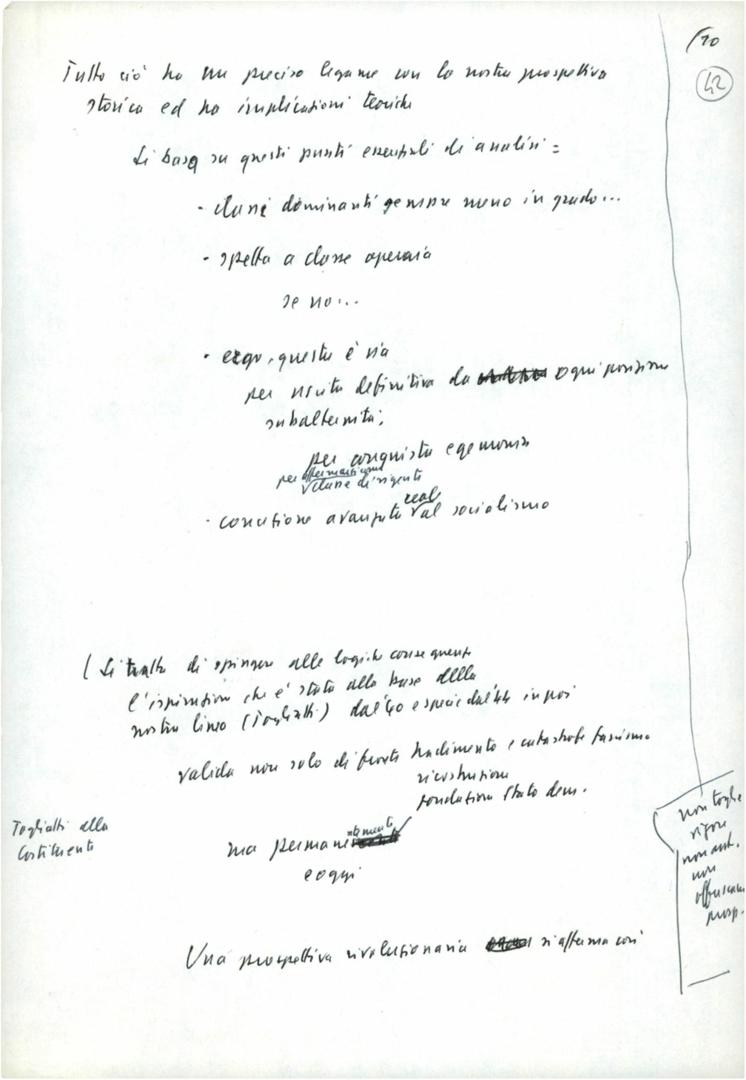 /10
42
Tutto ciò ha un preciso legame con la nostra prospettiva
storica ed ha implicazioni teoriche
Si basa su questi punti essenziali di analisi =
- classi dominanti sempre meno in grado...
- spetta a classe operaia
se no...
- ergo, questa è via
per uscita definitiva da ogni posizione
subalternità;
per conquista egemonia
per affermazione
classe dirigente
- concezione avanzata reale al socialismo
(Si tratta di spingere alle logiche conseguenze
l'ispirazione che è stata alla base della
nostra linea (Togliatti) dal '40 e specie dal '44 in poi
valida non solo di fronte tradimento e catastrofe fascismo
ricostruzione
fondazione Stato dem.
Togliatti alla
Costituente
ma permanentemente
e oggi
non toglie
rigore
non
offuscare
prosp.
Una prospettiva rivoluzionaria si afferma così